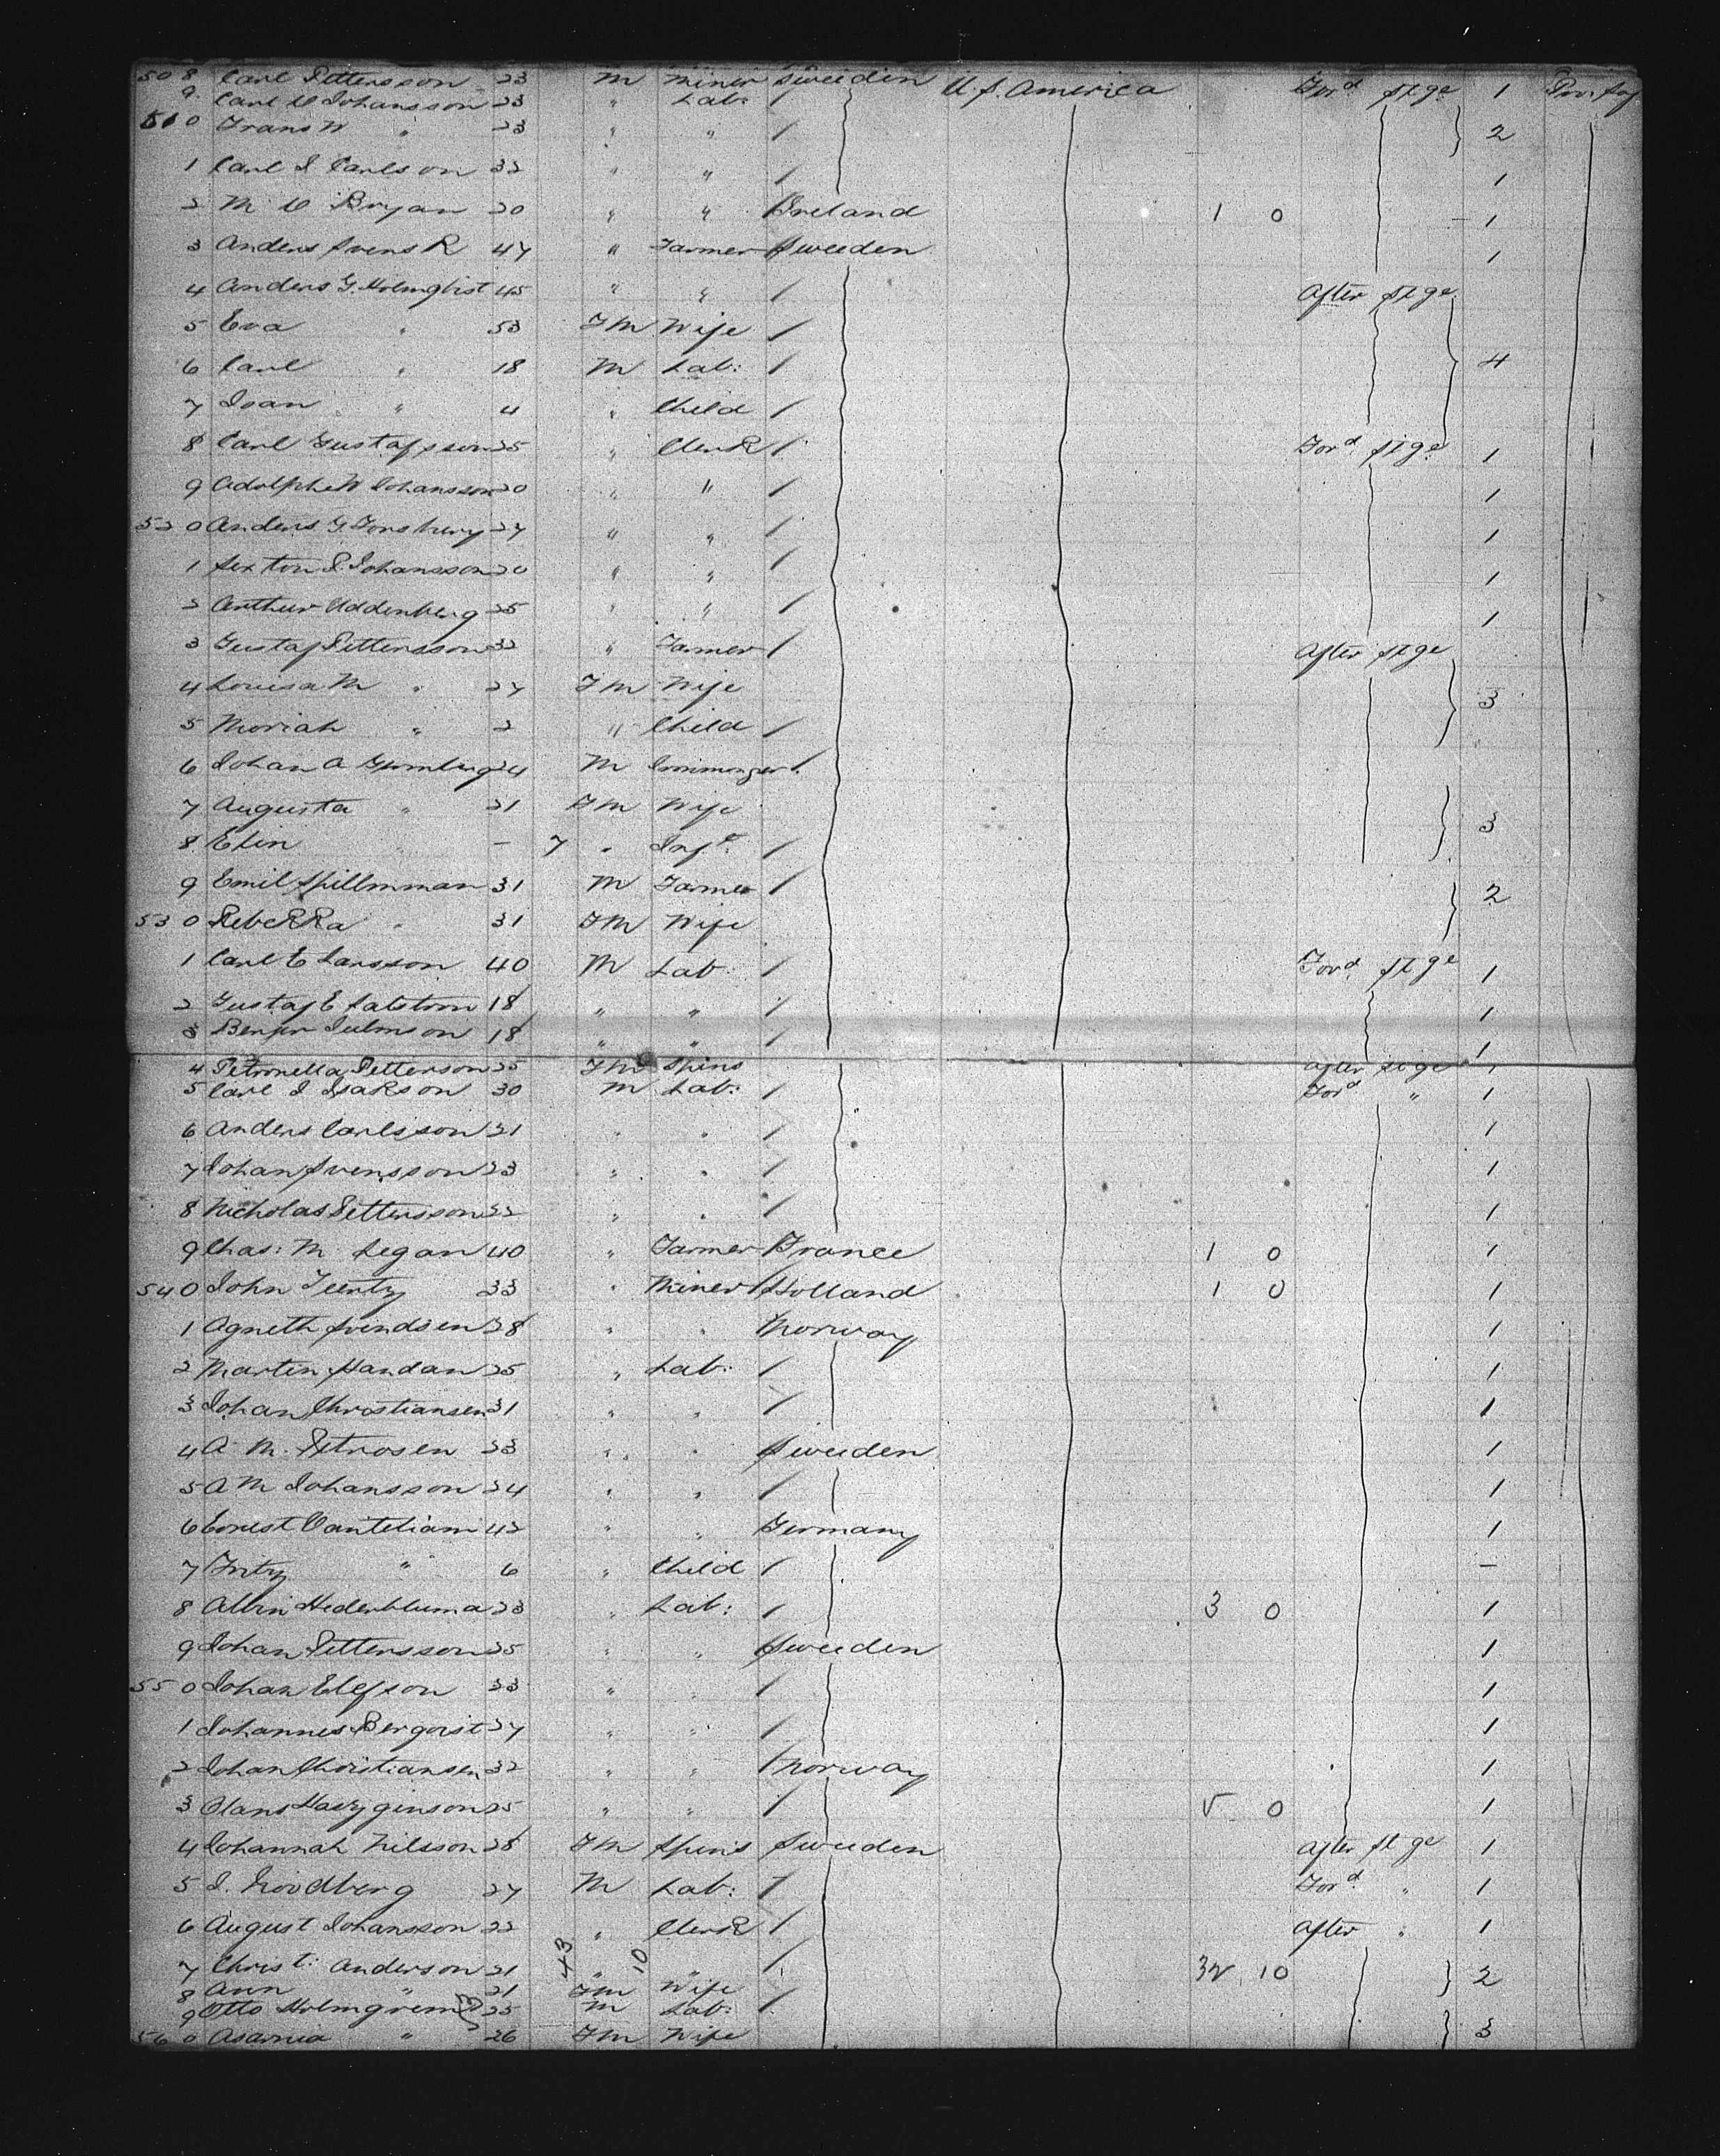 508 Carl Pettersson 23 M Miner Sweeden U.S. America Ford stge 1
9 Carl Johansson 23 " Lab: /
510 Frans W " 23 " " / 2
1 Carl I Carlson 32 " " / 1
2 M Bryan 20 " " Ireland 1 0 1
3 Anders Svens R 47 " Farmer Sweeden 1
4 Anders G. Holmqvist 45 " " / After stge
5 Eva " 53 FM Wife /
6 Carl " 18 M Lab: / 4
7 Ivan " 4 " Child /
8 Carl Gustafsson 25 " Clerk / Ford stge 1
9 Adolphe W Johansson 20 " " / 1
520 Anders G. Forsberg 27 " " / 1
1 Sexton P. Johansson 20 " " / 1
2 Arthur Uddenberg 25 " " / 1
3 Gustaf Pettersson 32 " Farmer / After stge
4 Louisa M " 27 FM Wife 3
5 Moriah " 2 " Child /
6 Johan A 24 M Ironmonger /
7 Augusta " 21 FM Wife 3
8 Elin - 7 " Inft /
9 Emil Spillmman 31 M Farmer / 2
530 RebeRRa " 31 FM Wife
1 Carl E Larsson 40 M Lab: / Ford stge 1
2 Gustaf E 18 " " / 1
3 18 " " / 1
4 Petronella Petterson 25 FM Spins After stge 1
5 Carl I IsaRson 30 M Lab: / Ford " 1
6 Anders Carlsson 21 " " / 1
7 Johan Svensson 23 " " / 1
8 Nicholas Pettersson 22 " " / 1
9 Chas: M. Legan 40 " Farmer France 1 0 1
540 John 33 " Miner Holland 1 0 1
1 Agneth Svendsen 28 " " Norway 1
2 Martin Handan 25 " Lab: / 1
3 Johan Christiansen 31 " " / 1
4 A. M. Petrosen 23 " " Sweeden 1
5 A M Johansson 24 " " / 1
6 Ernest 42 " " Germany 1
7 Fritz " 6 " Child / -
8 Albin 23 " Lab: / 3 0 1
9 Johan Pettersson 25 " " Sweeden 1
550 Johan Elefson 23 " " / 1
1 Johannes Bergvist 27 " " / 1
2 Johan Christiansen 32 " " Norway 1
3 25 " " / 5 0 1
4 Johannah Nilsson 28 FM Spins Sweeden After stge 1
5 J. 27 M Lab: / Ford " 1
6 August Johansson 22 " Clerk / After " 1
7 Christ: Anderson 21 43 " 10 " / 32 10
8 Ann " 21 FM Wife 2
9 Otto Holmgren 25 M Lab: /
560 " 26 FM Wife 3